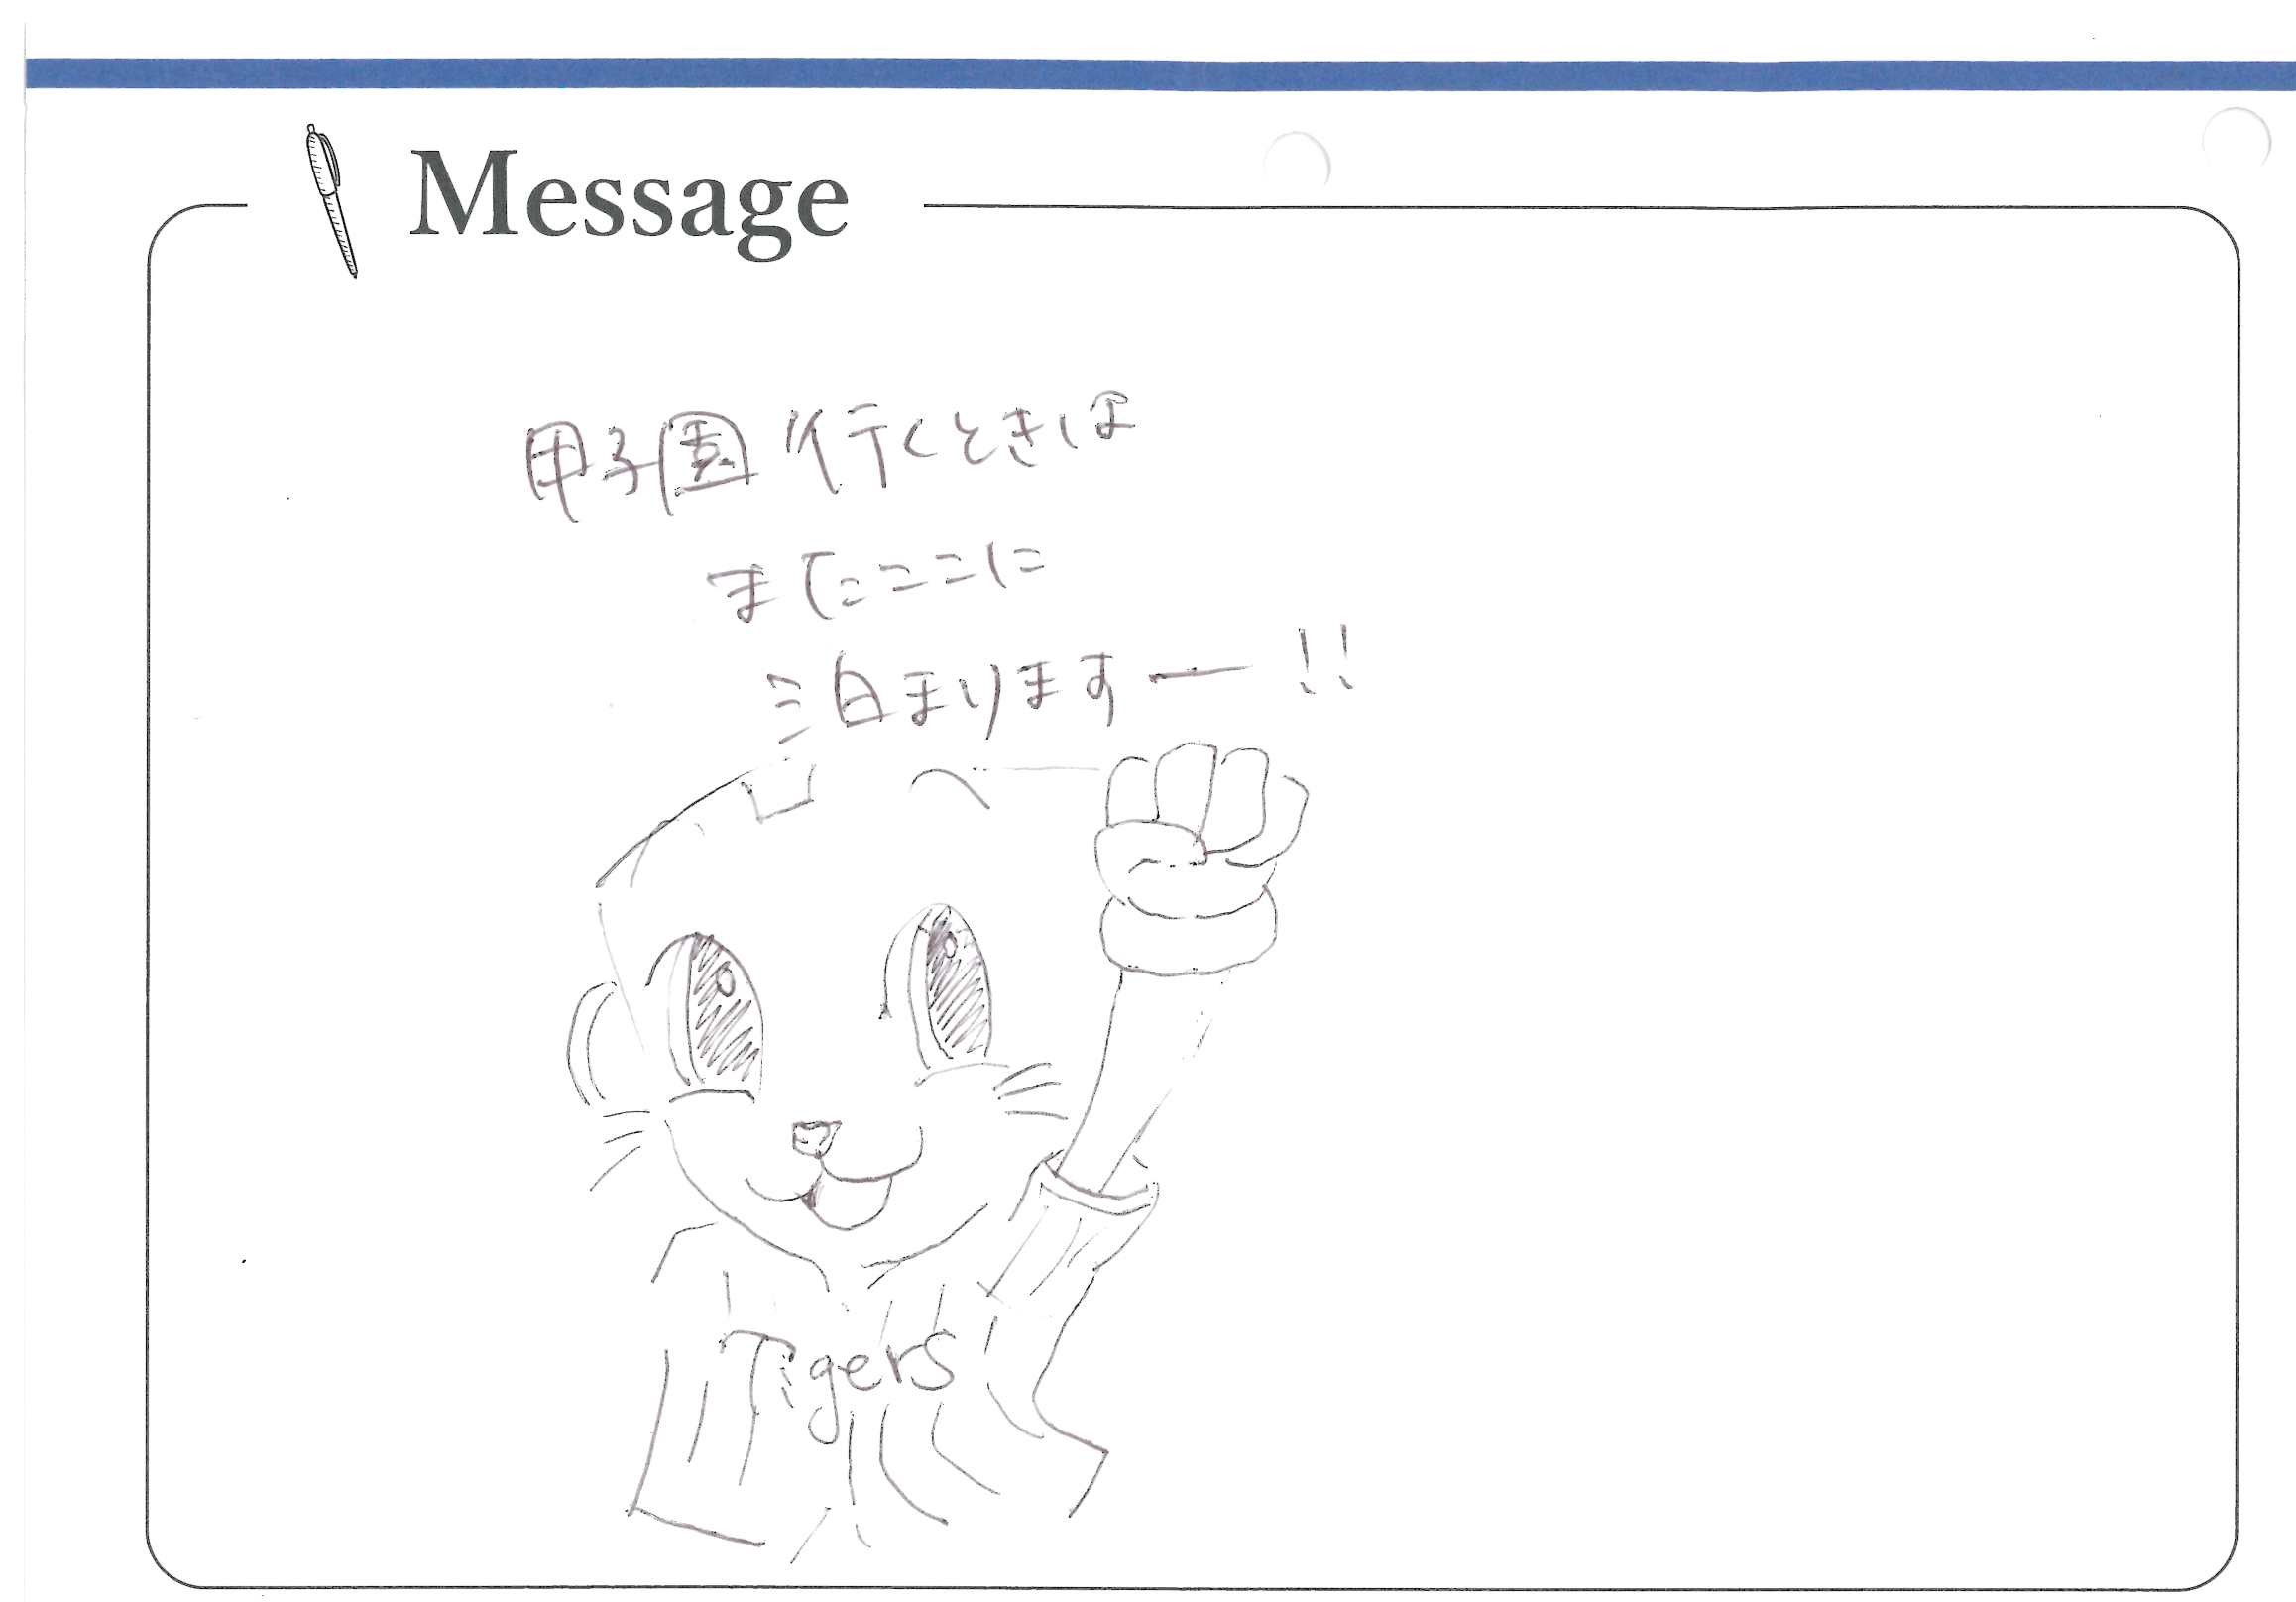 Message
甲子園行くときは
またここに
泊まりますー!!
Tigers